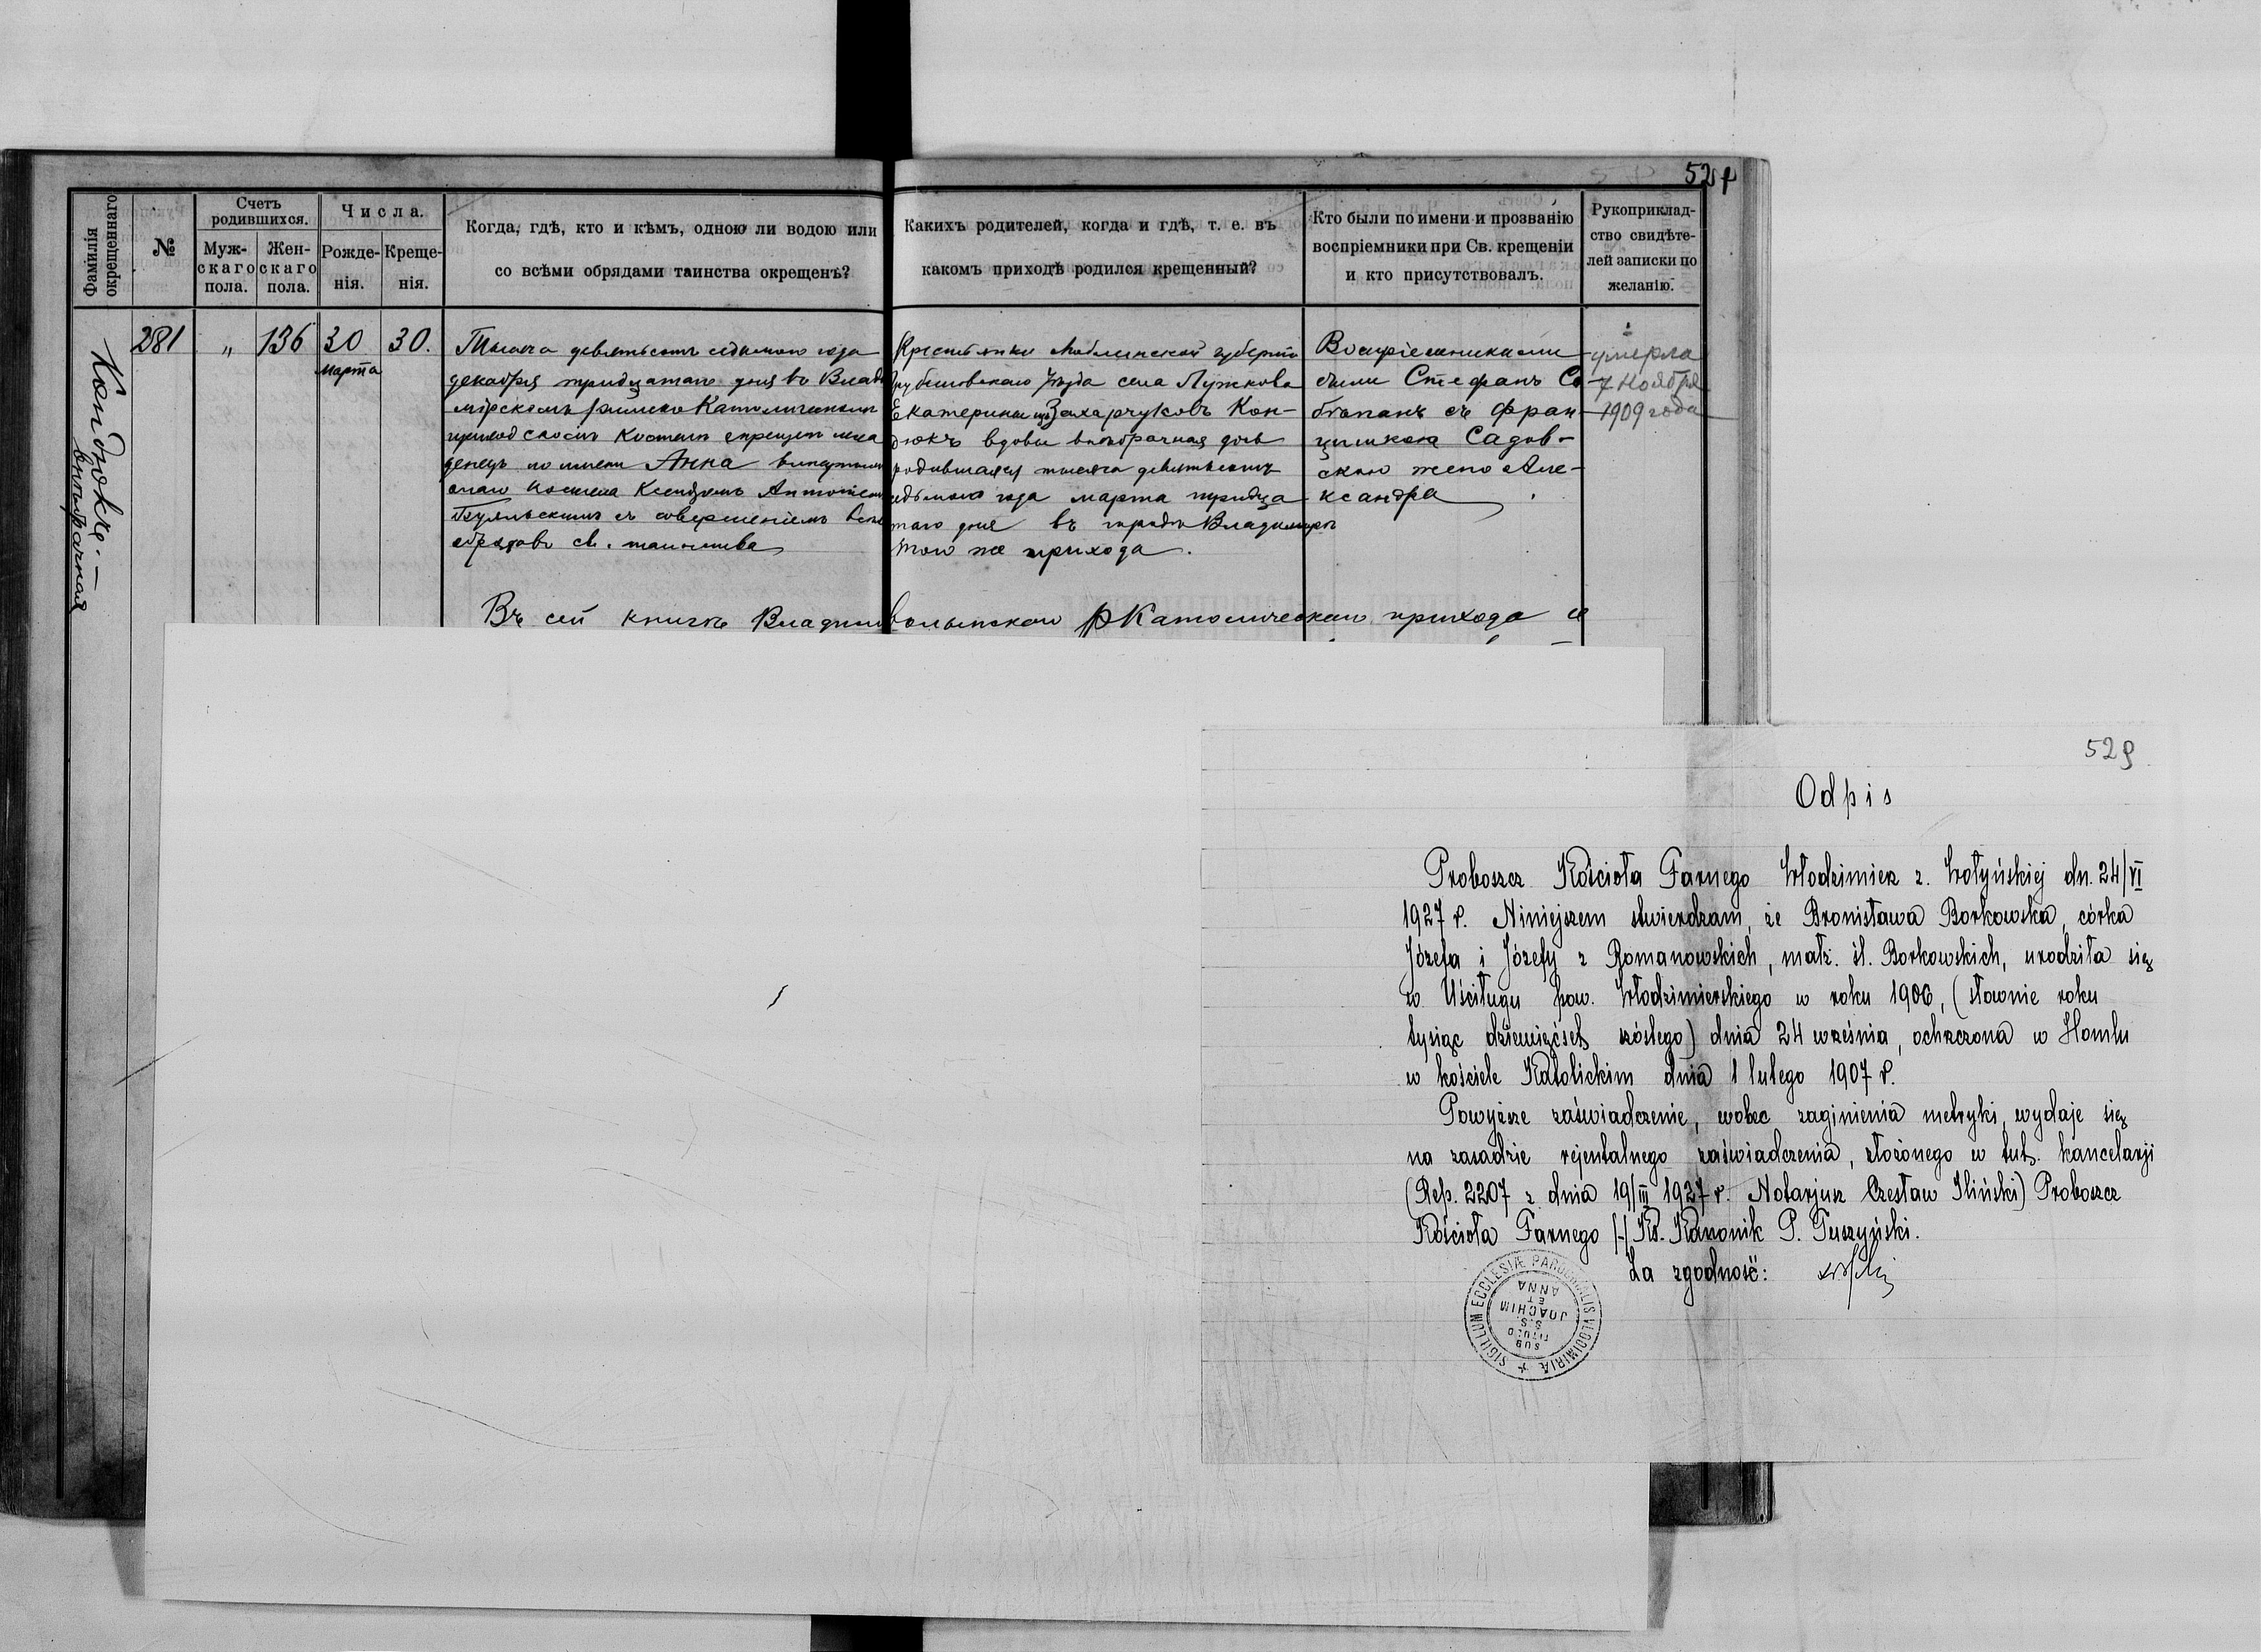 527
Фамилія окрещеннаго
№
Счетъ родившихся.
Муж-скаго пола.
Жен-скаго пола.
Числа.
Рожде-нія.
Креще-нія.
Когда, гдѣ, кто и кѣмъ, одною ли водою или
со всѣми обрядами таинства окрещенъ?
Какихъ родителей, когда и гдѣ, т. е. въ
какомъ приходѣ родился крещенный?
Кто были по имени и прозванію
воспріемники при Св. крещеніи
и кто присутствовалъ.
Рукоприклад-
ство свидѣте-
лей записки по
желанію.
Кондюкъ. —
внѣбрачная
281
„
136
30
марта
30.
Тысяча девятьсотъ седьмого года
декабря тридцатаго дня во Влади
мірскомъ римско Католическомъ
приход скомъ Костелѣ окрещенъ мла
денецъ по имени Анна
онаго Костела Ксендзомъ Антоніемъ
съ совершеніемъ всѣхъ
обрядовъ св. таинства
Крестьянки Люблинской губерніи
Грубешовскаго уѣзда села Лужкова
Екатерины изъ Захарчуковъ Кон-
дюкъ вдовы внѣбрачная дочь
родившаяся тысяча девятьсотъ
седьмого года марта тридца
таго дня въ городѣ Владимирѣ
того же прихода.
Воспріемниками
были Стефанъ Со
ботанъ съ Фран
цишкою Садов-
скою женою Але-
ксандра
умерла
7 Ноября
1909 года
Въ сей книгѣ Владим волынскаго р Католическаго прихода
529
Odpis
Proboszcz Kościoła Farnego Włodzimierz z. Wołyńskiej dn. 24/VI
1927 r. Niniejszem stwierdzam, że Bronisława Borkowska, córka
Józefa i Józefy z Romanowskich, małż. śl. Borkowskich, urodziła się
w Uściługu pow. Włodzimierskiego w roku 1906, (słownie roku
tysiąc dziewięćset szóstego) dnia 24 września, ochrzczona w Homlu
w kościele Katolickim dnia 1 lutego 1907 r.
Powyższe zaświadczenie, wobec zaginienia metryki, wydaje się
na zasadzie rejentalnego zaświadczenia, złożonego w tut. kancelarji
(Rep. 2207 z dnia 19/III 1927 r. Notarjusz Czesław Iliński) Proboszcz
Kościoła Farnego /-/ Ks. Kanonik P. Tuszyński.
Za zgodność:
SIGILLUM ECCLESIÆ PAROCHIALIS VLODIMIRIÆ
SUB TITULO S.S. JOACHIM ET ANNA